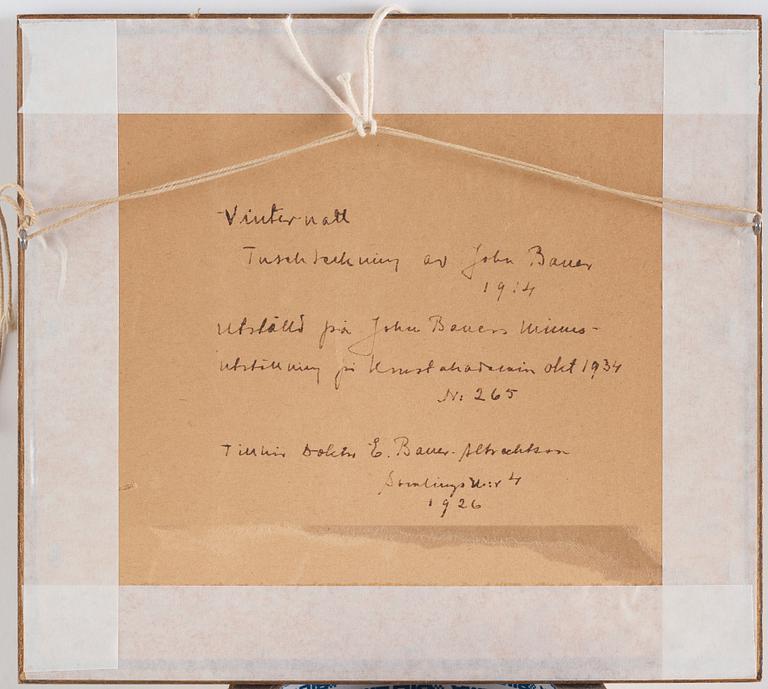 Vinternatt
Tuschteckning av John Bauer
1914
utställd på John Bauers Minnes-
utställning på Konstakademin okt 1934
N: 265
Tillhör Doktor E. Bauer-Albrechtson
Samlings N:r 4
1926